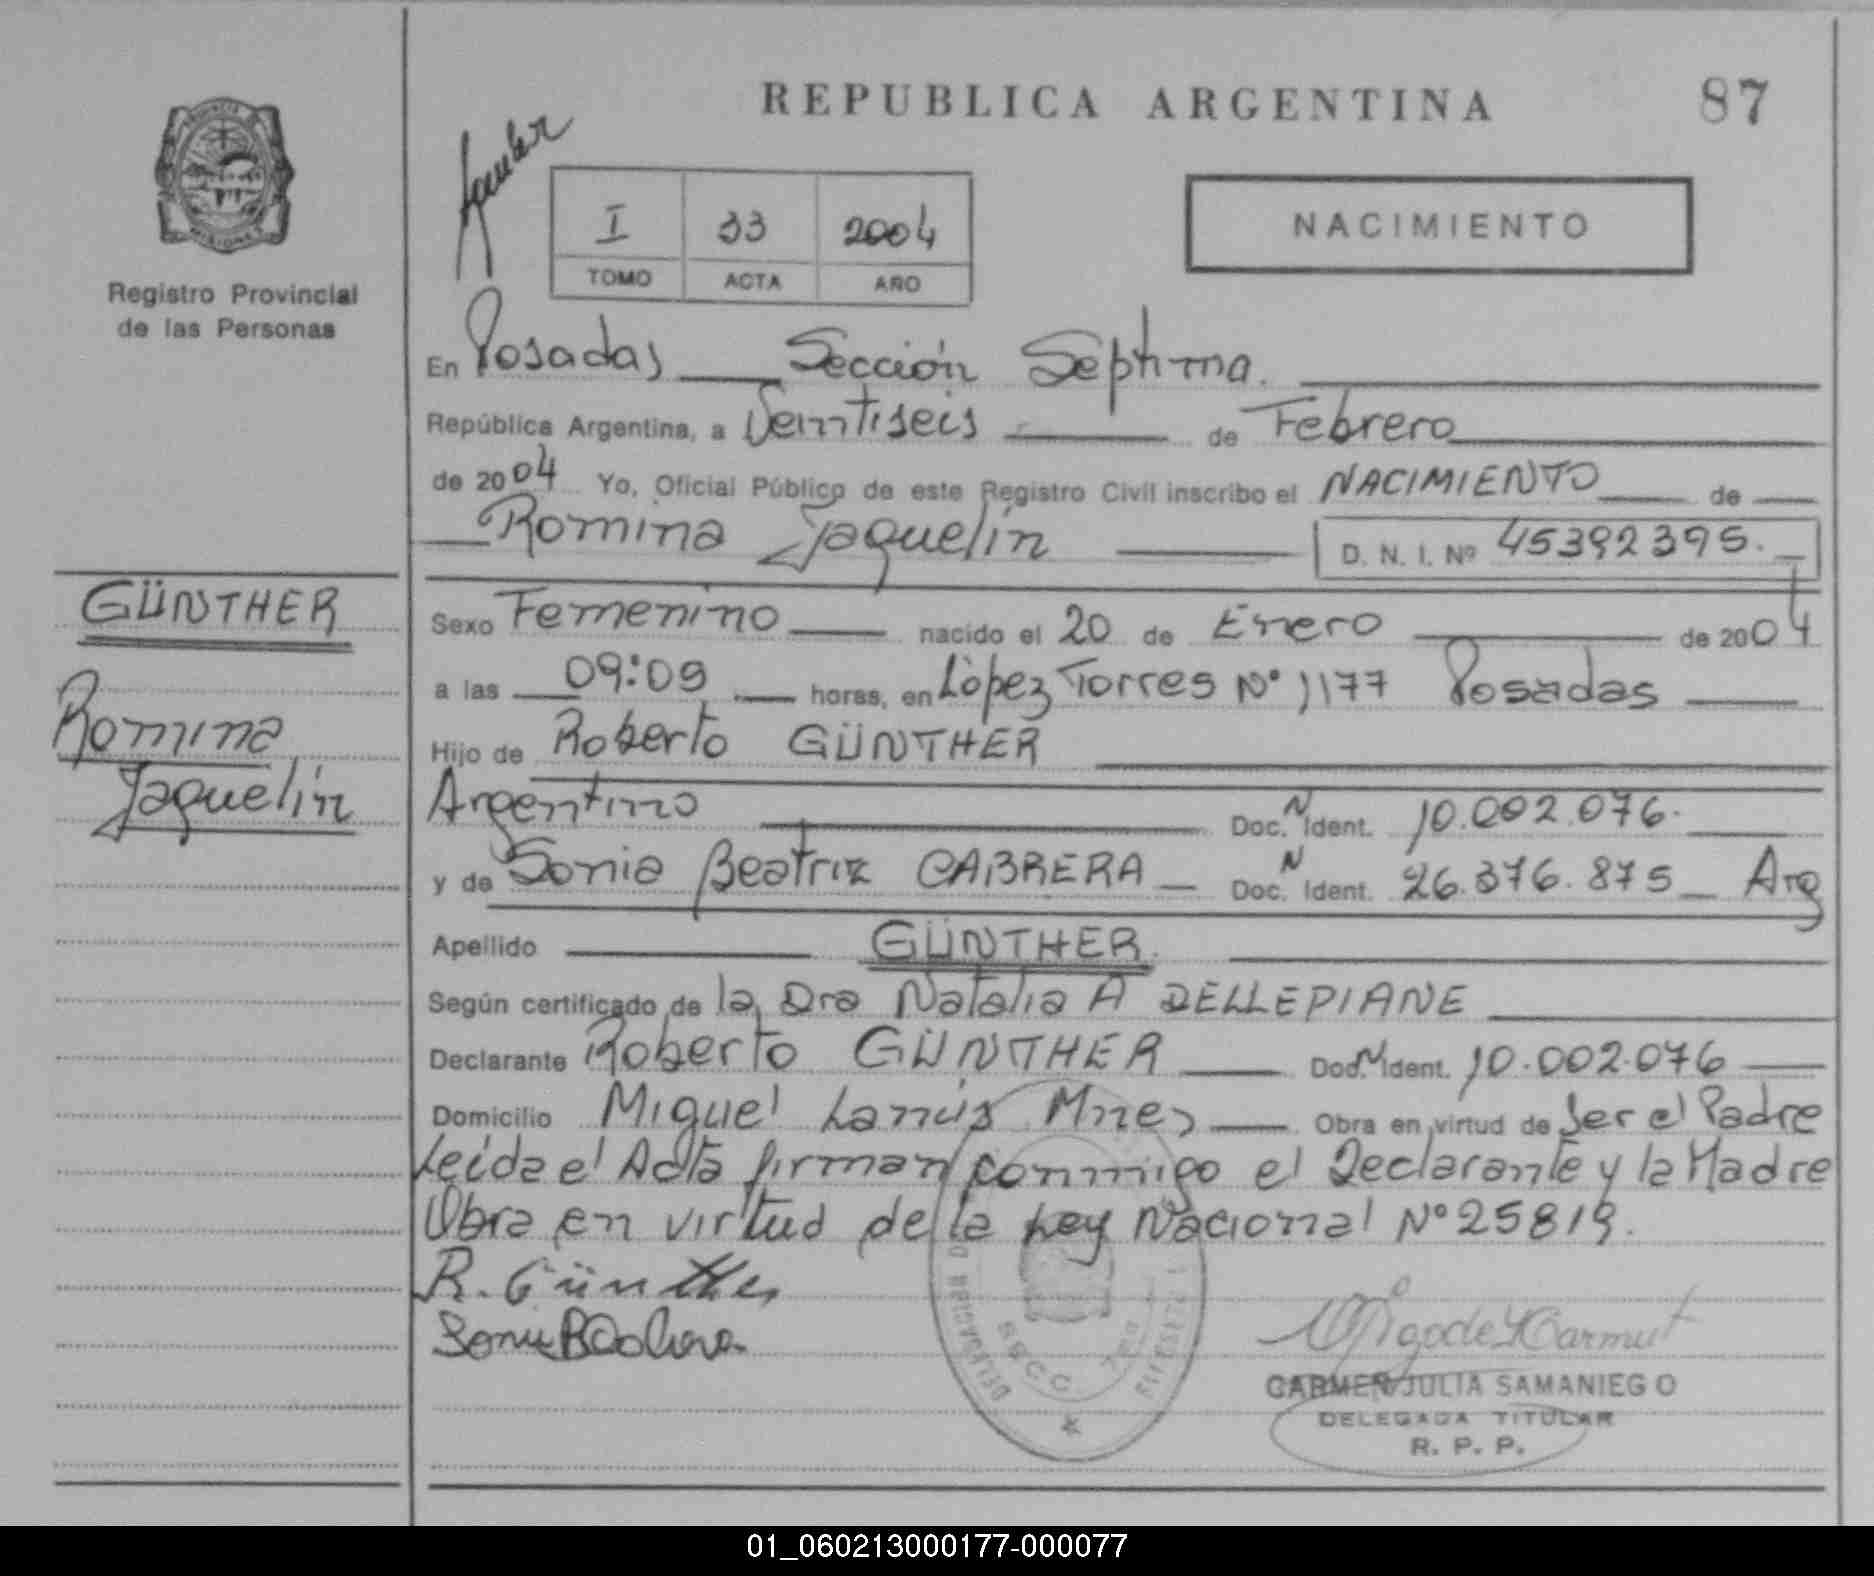 REPUBLICA ARGENTINA
87
PROVINCIA
MISIONES
Registro Provincial
de las Personas
I 33 2004
TOMO ACTA AÑO
NACIMIENTO
En Posadas Sección Septima.
República Argentina, a Veintiseis de Febrero
de 2004 Yo, Oficial Público de este Registro Civil inscribo el NACIMIENTO de
Romina Jaquelín D. N. I. Nº 45392395.
GÜNTHER
Romina
Jaquelín
Sexo Femenino nacido el 20 de Enero de 2004
a las 09:09 horas, en López Torres Nº 1177 Posadas
Hijo de Roberto GÜNTHER
Argentino Doc. N Ident. 10.002.076.
y de Sonia Beatriz CABRERA Doc. N Ident. 26.376.875 Arg
Apellido GÜNTHER.
Según certificado de la Dra Natalia A DELLEPIANE
Declarante Roberto GÜNTHER Doc. N Ident. 10.002.076
Domicilio Miguel Lanús Mnes Obra en virtud de Ser el Padre
Leída el Acta firman conmigo el Declarante y la Madre
Obra en virtud de la Ley Nacional Nº 25819.
R. Günther
CARMEN JULIA SAMANIEGO
DELEGADA TITULAR
R. P. P.
01_060213000177-000077